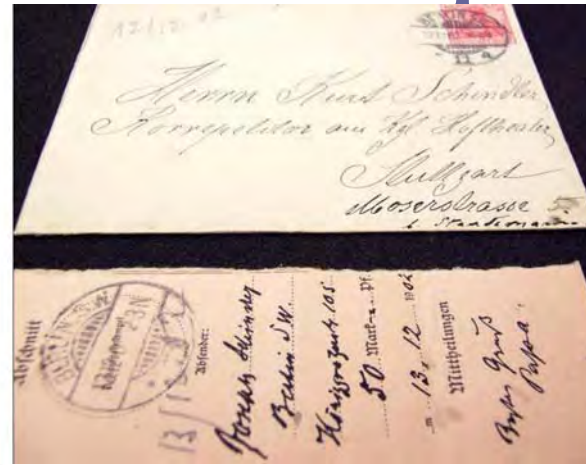 12/12. 02
BERLIN
Herrn Kurt Schindler
Korrepetitor am Kgl Hoftheater
Stuttgart
Moserstrasse
b.
Abschnitt
BERLIN S.W.
2-3N
13/12
Absender:
Berlin S.W.
Königgrätzerstr. 105
50 Mark Pf.
13. 12 1902
Mittheilungen
Gruß
Papa.